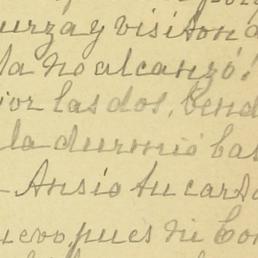 urza y visiton a
da no alcanzó!
ior las dos, bend
la durmió bas
- Ansío tu carta
uevo, pues ni Con